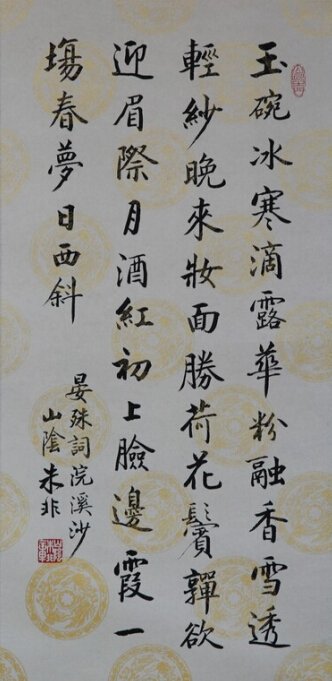 玉碗冰寒滴露華粉融香雪透
輕紗晚來妝面勝荷花鬢嚲欲
迎眉際月酒紅初上臉邊霞一
塲春夢日西斜
晏殊詞浣溪沙
山陰朱非